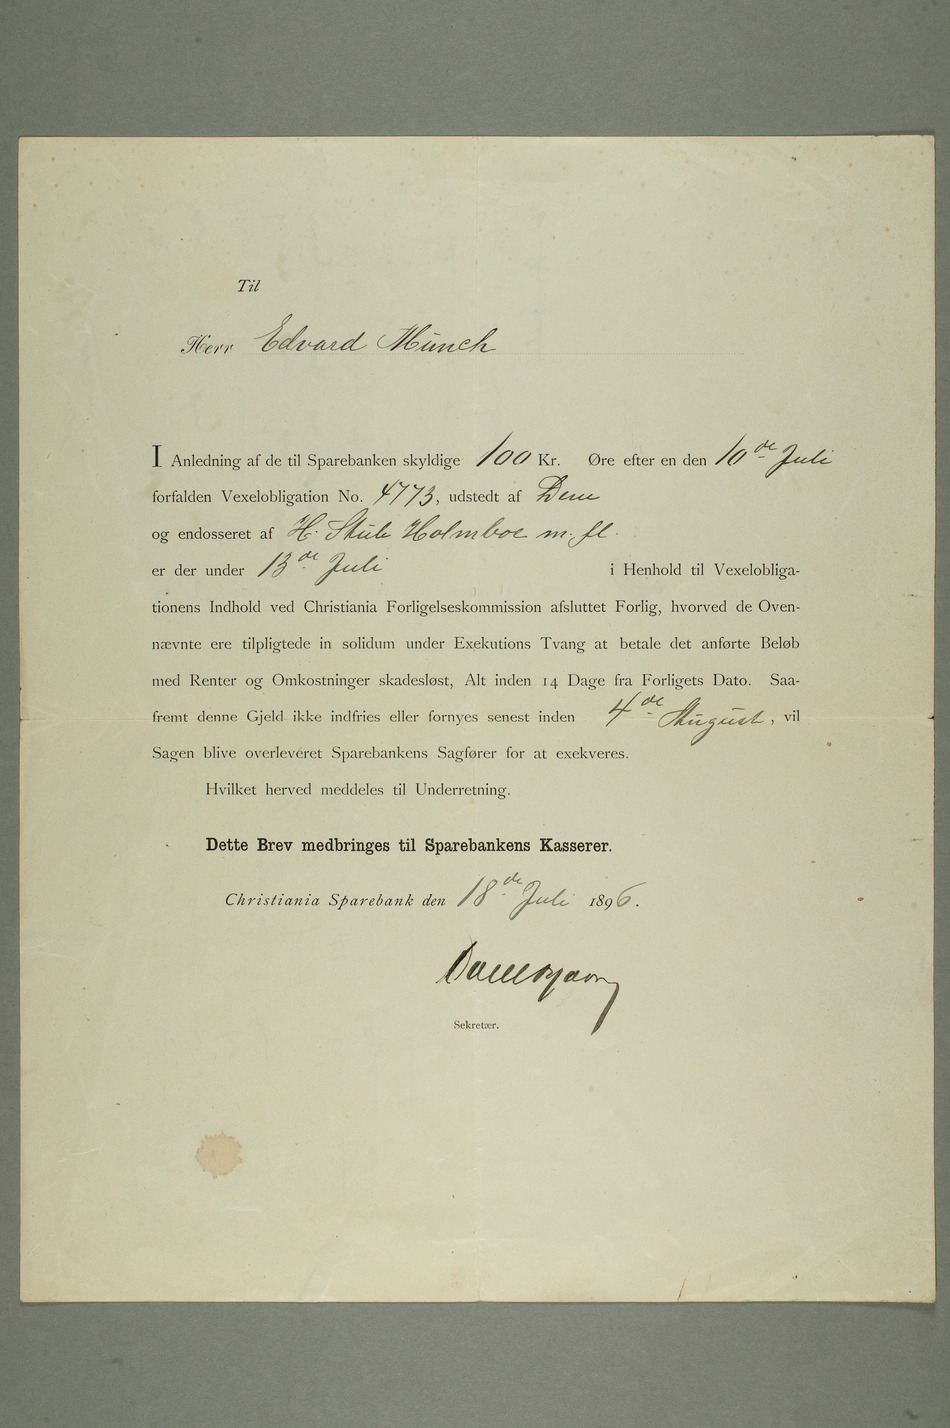 Til
Herr Edvard Munch
I Anledning af de til Sparebanken skyldige 100 Kr. Øre efter en den 10de Juli
forfalden Vexelobligation No. 4773, udstedt af Dem
og endosseret af H. Stub Holmboe m. fl.
er der under 13de Juli i Henhold til Vexelobliga-
tionens Indhold ved Christiania Forligelseskommission afsluttet Forlig, hvorved de Oven-
nævnte ere tilpligtede in solidum under Exekutions Tvang at betale det anførte Beløb
med Renter og Omkostninger skadesløst, Alt inden 14 Dage fra Forligets Dato. Saa-
fremt denne Gjeld ikke indfries eller fornyes senest inden 4de August, vil
Sagen blive overleveret Sparebankens Sagfører for at exekveres.
Hvilket herved meddeles til Underretning.
Dette Brev medbringes til Sparebankens Kasserer.
Christiania Sparebank den 18de Juli 1896.
Sekretær.